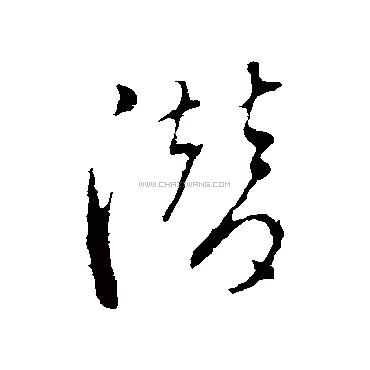 潜
WWW.CHAZIWANG.COM